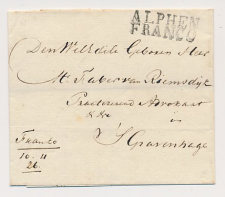 ALPHEN
FRANCO
Den WelEdele Geboren Heer
Mr. Faber van Riemsdijk
Practiserend Advokaat
&&a
in
'S Gravenhage
Franco
10-11
26.